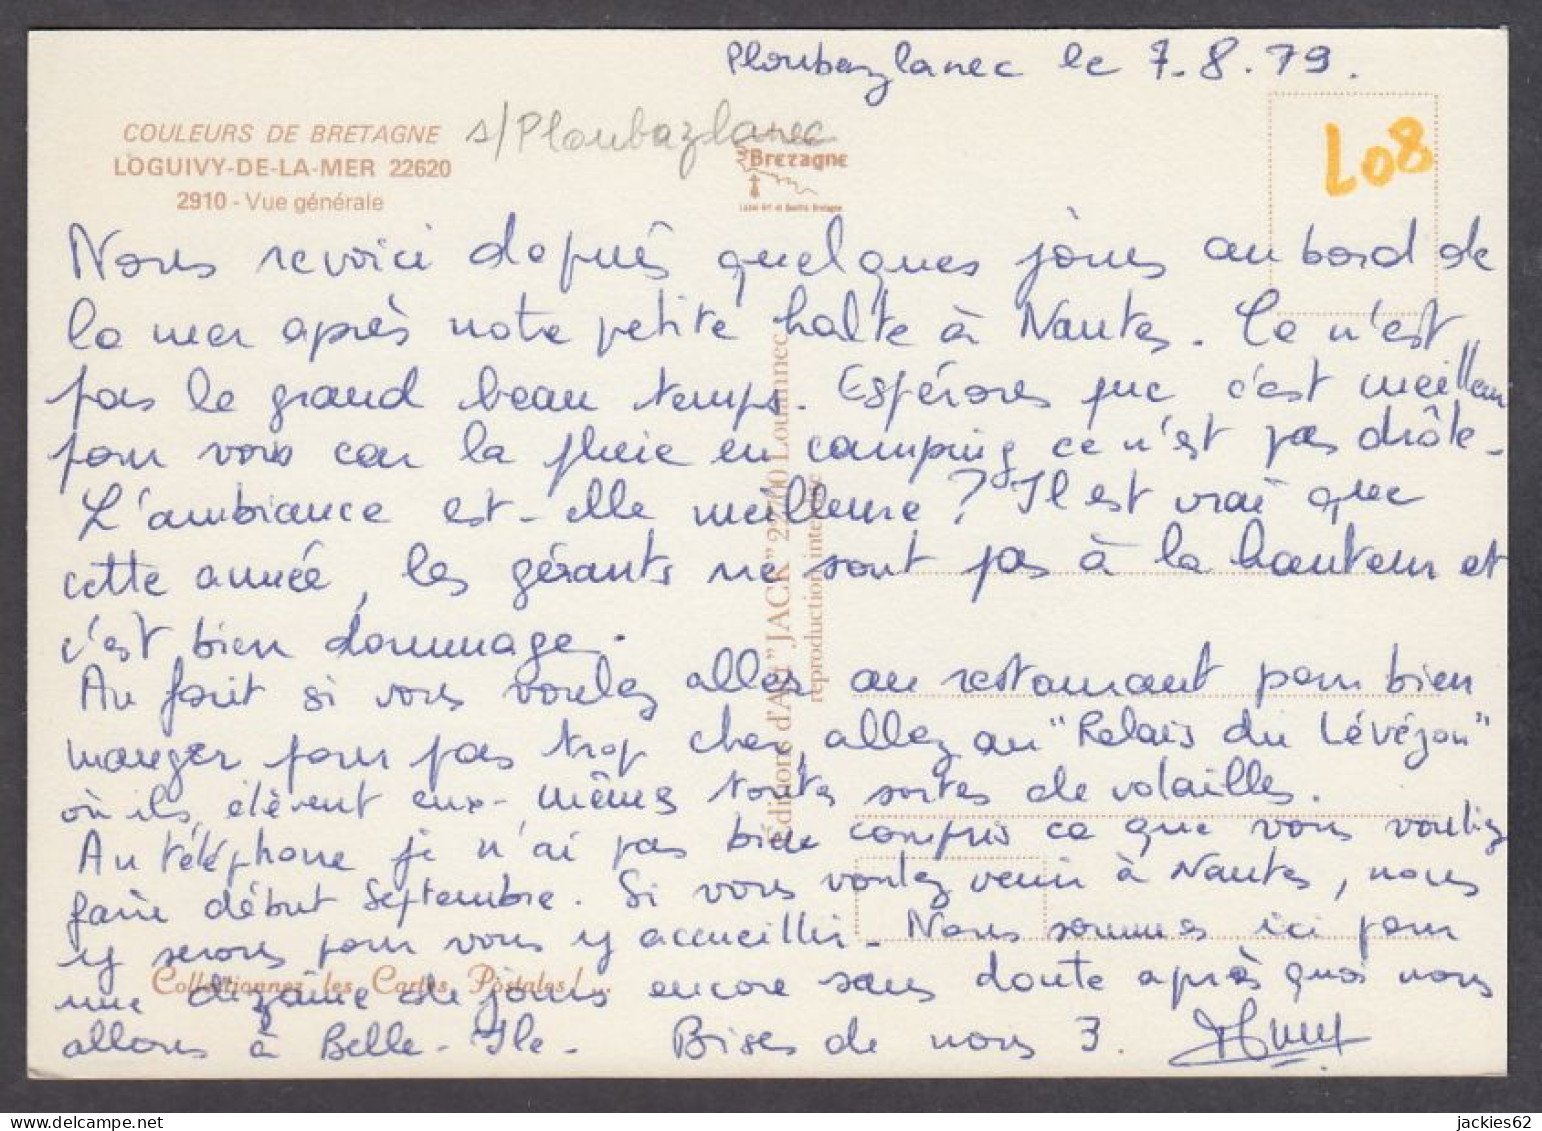 Ploubazlanec le 7.8.79.
COULEURS DE BRETAGNE
s/Ploubazlanec
LOGUIVY-DE-LA-MER 22620
2910 - Vue générale
Bretagne
L08
Nous revoici depuis quelques jours au bord de
la mer après notre petite halte à Nantes. Ce n'est
pas le grand beau temps. Espérons que c'est meilleur
pour vous car la pluie en camping ce n'est pas drôle -
L'ambiance est-elle meilleure ? Il est vrai que
cette année, les gérants ne sont pas à la hauteur et
c'est bien dommage.
Au fait si vous voulez aller au restaurant pour bien
manger pour pas trop cher, allez au "Relais du Lévéjou"
où ils élèvent eux-mêmes toutes sortes de volailles.
Au téléphone je n'ai pas bien compris ce que vous vouliez
faire début Septembre. Si vous voulez venir à Nantes, nous
y serons pour vous y accueillir - Nous sommes ici pour
une dizaine de jours encore sans doute après quoi nous
allons à Belle-Ile - Bises de nous 3.
Editions d'Art "JACK" 22700 Louannec
reproduction interdite
Collectionnez les Cartes Postales !...
jackies62